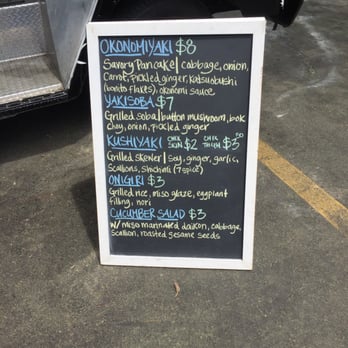 OKONOMIYAKI $8
Savory Pancake/ cabbage, onion,
Carrot, pickled ginger, katsuobushi
(bonito flakes), okonomi sauce
YAKISOBA $7
Grilled soba/button mushroom, bok
choy, onion, pickled ginger
KUSHIYAKI CHIX SKIN $2 CHIX THIGH $3.50
Grilled skewer/ soy, ginger, garlic,
Scallions, Shichimi (7 spice)
ONIGIRI $3
Grilled rice, miso glaze, eggplant
filling, nori
CUCUMBER SALAD $3
W/ miso marinated daikon, cabbage,
Scallion, roasted sesame seeds